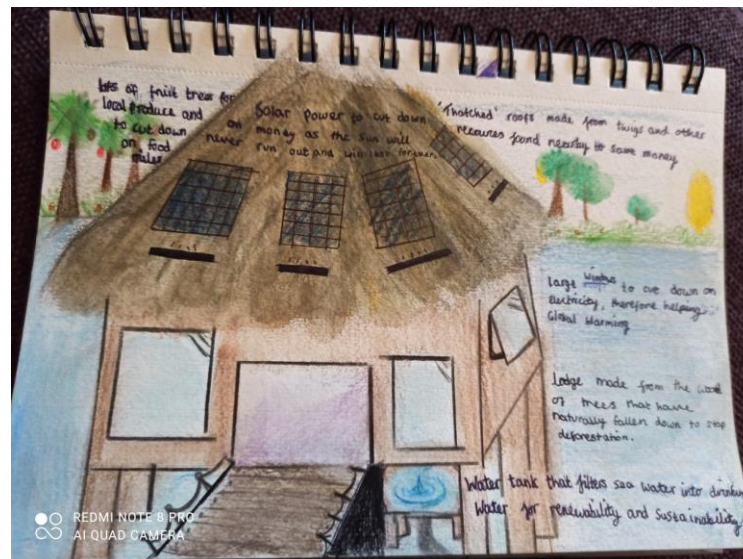 lots of fruit trees for
local produce and
to cut down on
on food
miles
Solar power to cut down
money as the sun will
never run out and will last forever.
'Thatched' roofs made from twigs and other
recoures found nearby to save money
Large windows to cut down on
electricity, therefore helping
Global Warming
Lodge made from the wood
of trees that have
naturally fallen down to stop
deforestation.
Water tank that filters sea water into drinking
Water for renewability and sustainability
REDMI NOTE 8 PRO
AI QUAD CAMERA